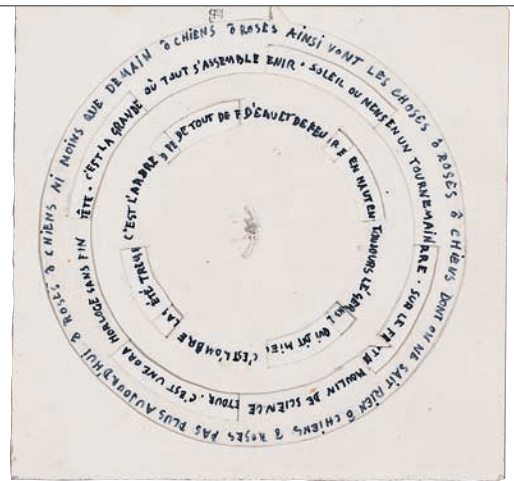 Ô ROSES AINSI VONT LES CHOSES Ô ROSES Ô CHIENS DONT ON NE SAIT RIEN Ô CHIENS Ô ROSES PAS PLUS AUJOURD'HUI Ô ROSES Ô CHIENS NI MOINS QUE DEMAIN Ô CHIENS
C'EST LA GRANDE OÙ TOUT S'ASSEMBLE ENIR · SOLEIL OU MENS EN UN TOURNEMAIN RRE · SUR LE FE MOULIN DE SCIENCE ETOUR · C'EST UNE ORA HORLOGE SANS FIN ÊTE ·
C'EST L'ARBRE DE TOUT DE F D'EAU ET DE FEU IRE EN HAUT EN TOUJOURS LÉGER QUI DIT MIE C'EST L'OMBRE LAS ÉTÉ TREM